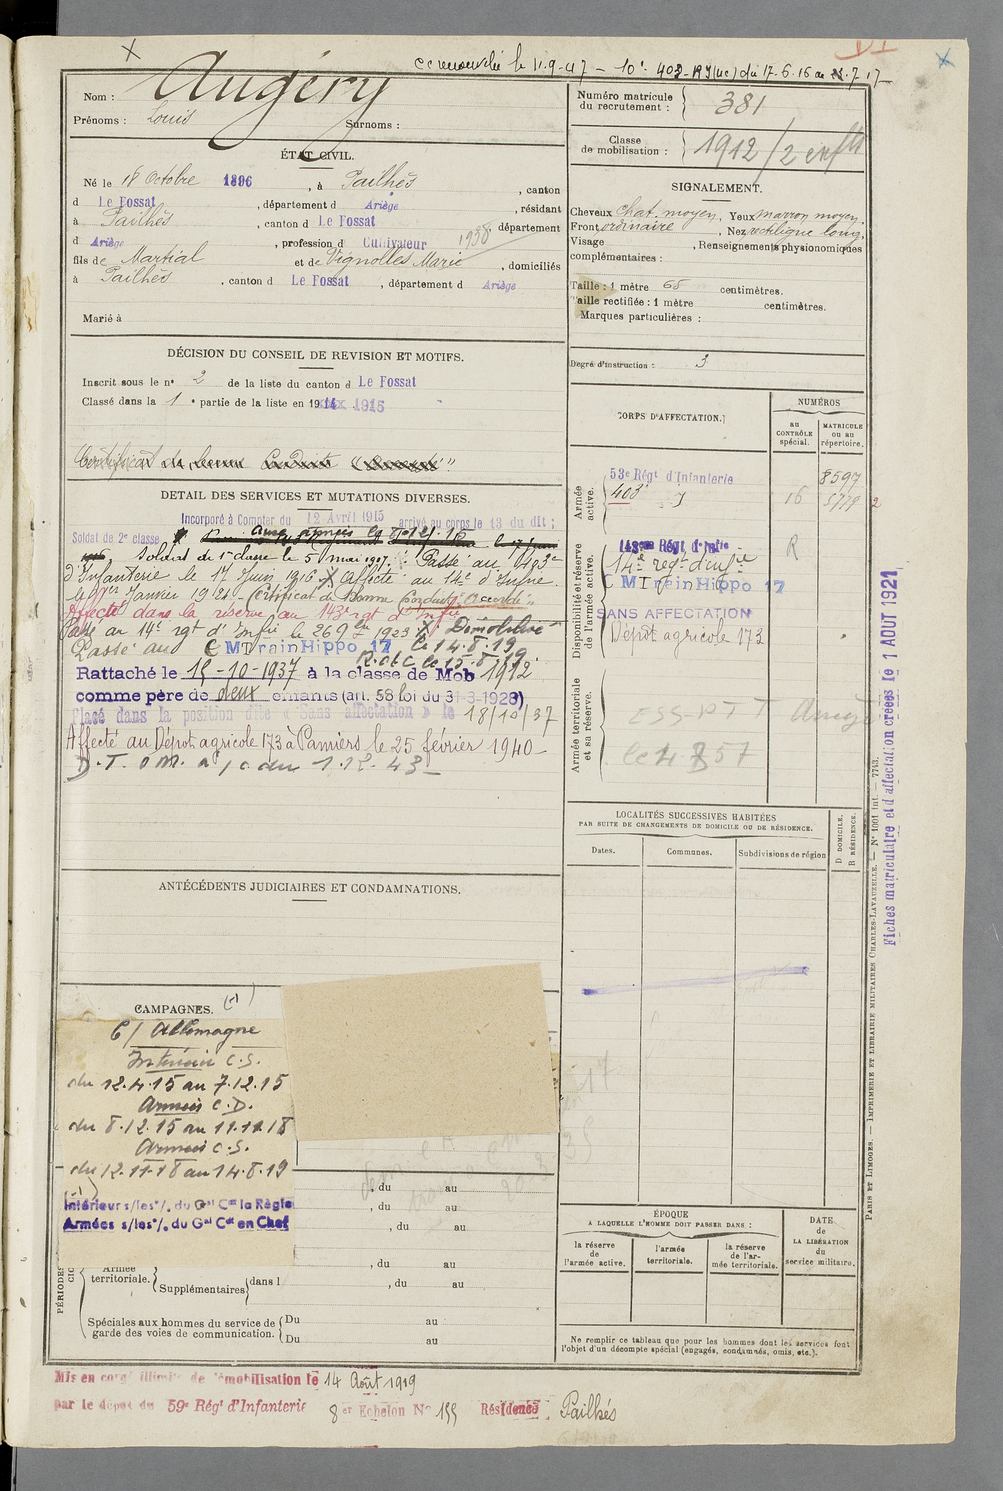 cc renouvelée le 11-9-47 - 10e 403 - RI (uc) du 17-6-16 au 7.17
Nom : Augéry
Prénoms : Louis Surnoms :
ÉTAT CIVIL.
Né le 18 Octobre 1896, à Pailhès, canton
d Le Fossat, département d Ariège, résidant
à Pailhès, canton d Le Fossat département
d Ariège, profession d Cultivateur 1938
fils de Martial et de Vignolles Marie, domiciliés
à Pailhès, canton d Le Fossat, département d Ariège
Marié à
DÉCISION DU CONSEIL DE REVISION ET MOTIFS.
Inscrit sous le n° 2 de la liste du canton d Le Fossat
Classé dans la 1e partie de la liste en 1915
Certificat de bonne Conduite "
DETAIL DES SERVICES ET MUTATIONS DIVERSES.
Incorporé à Compter du 12 Avril 1915 arrivé au corps le 13 du dit ;
Soldat de 2e classe
Soldat de 1re classe le 5 mai 1917. Passé au 403e
d'Infanterie le 17 Juin 1916 X Affecté au 14e d'Infrie
le 1er Janvier 1921 - Certificat de Bonne Conduite "Accordé"
Affecté dans la réserve au 143e rgt d'Infie
Passé au 14e rgt d'Infie le 26 9 1923 X Démobilisé
le 14.8.19
Passé au C M Train Hippo 17
R. de C le 15.8.19
Rattaché le 15-10-1937 à la classe de Mob 1912
comme père de deux enfants (art. 58 loi du 31-3-1928)
Placé dans la position dite « Sans affectation » le 18/10/37
Affecté au Dépôt agricole 173 à Pamiers le 25 février 1940 -
D.T. OM. a/c du 1.12.43 -
ANTÉCÉDENTS JUDICIAIRES ET CONDAMNATIONS.
CAMPAGNES. (1)
C/ Allemagne
Intérieur C.S.
du 12.4.15 au 7.12.15
Armées C.D.
du 8.12.15 au 11.11.18
Armées C.S.
du 12.11.18 au 14.8.19
(1)
Intérieur s/les °/. du Gal Ct la Règle
Armées s/les °/. du Gal Ct en Chef
, du au
, du au
, du au
, du au
PÉRIODES
Armée territoriale.
Supplémentaires dans l , du au
Spéciales aux hommes du service de garde des voies de communication.
Du au
Du au
Mis en congé illimité de démobilisation le 14 Août 1919
par le dépôt du 59e Régt d'Infanterie 8 et Echelon N° 155 Résidence Pailhés
Numéro matricule du recrutement : 381
Classe de mobilisation : 1912 / 2 enfts
SIGNALEMENT.
Cheveux chat. moyen, Yeux marron moyen,
Front ordinaire, Nez rectiligne long,
Visage , Renseignements physionomiques
complémentaires :
Taille : 1 mètre 65 centimètres.
Taille rectifiée : 1 mètre centimètres.
Marques particulières :
Degré d'instruction : 3
CORPS D'AFFECTATION.
NUMÉROS
au CONTRÔLE spécial.
MATRICULE ou au répertoire.
Armée active.
53e Régt d'Infanterie 8597
403e I 16 5779 2
Disponibilité et réserve de l'armée active.
143e Régt d'Infie R
14e regt d'infie
C M Train Hippo 17
SANS AFFECTATION
Dépôt agricole 173
Armée territoriale et sa réserve.
LOCALITÉS SUCCESSIVES HABITÉES
PAR SUITE DE CHANGEMENTS DE DOMICILE OU DE RÉSIDENCE.
Dates.
Communes.
Subdivisions de région
D DOMICILE.
R RÉSIDENCE.
ÉPOQUE
A LAQUELLE L'HOMME DOIT PASSER DANS :
la réserve de l'armée active.
l'armée territoriale.
la réserve de l'armée territoriale.
DATE de LA LIBÉRATION du service militaire.
Ne remplir ce tableau que pour les hommes dont les services font
l'objet d'un décompte spécial (engagés, condamnés, omis, etc.).
Fiches matriculaire et d'affectation créées le 1 AOUT 1921
PARIS ET LIMOGES. — IMPRIMERIE ET LIBRAIRIE MILITAIRES CHARLES-LAVAUZELLE. — N° 1001 int. — 7743.